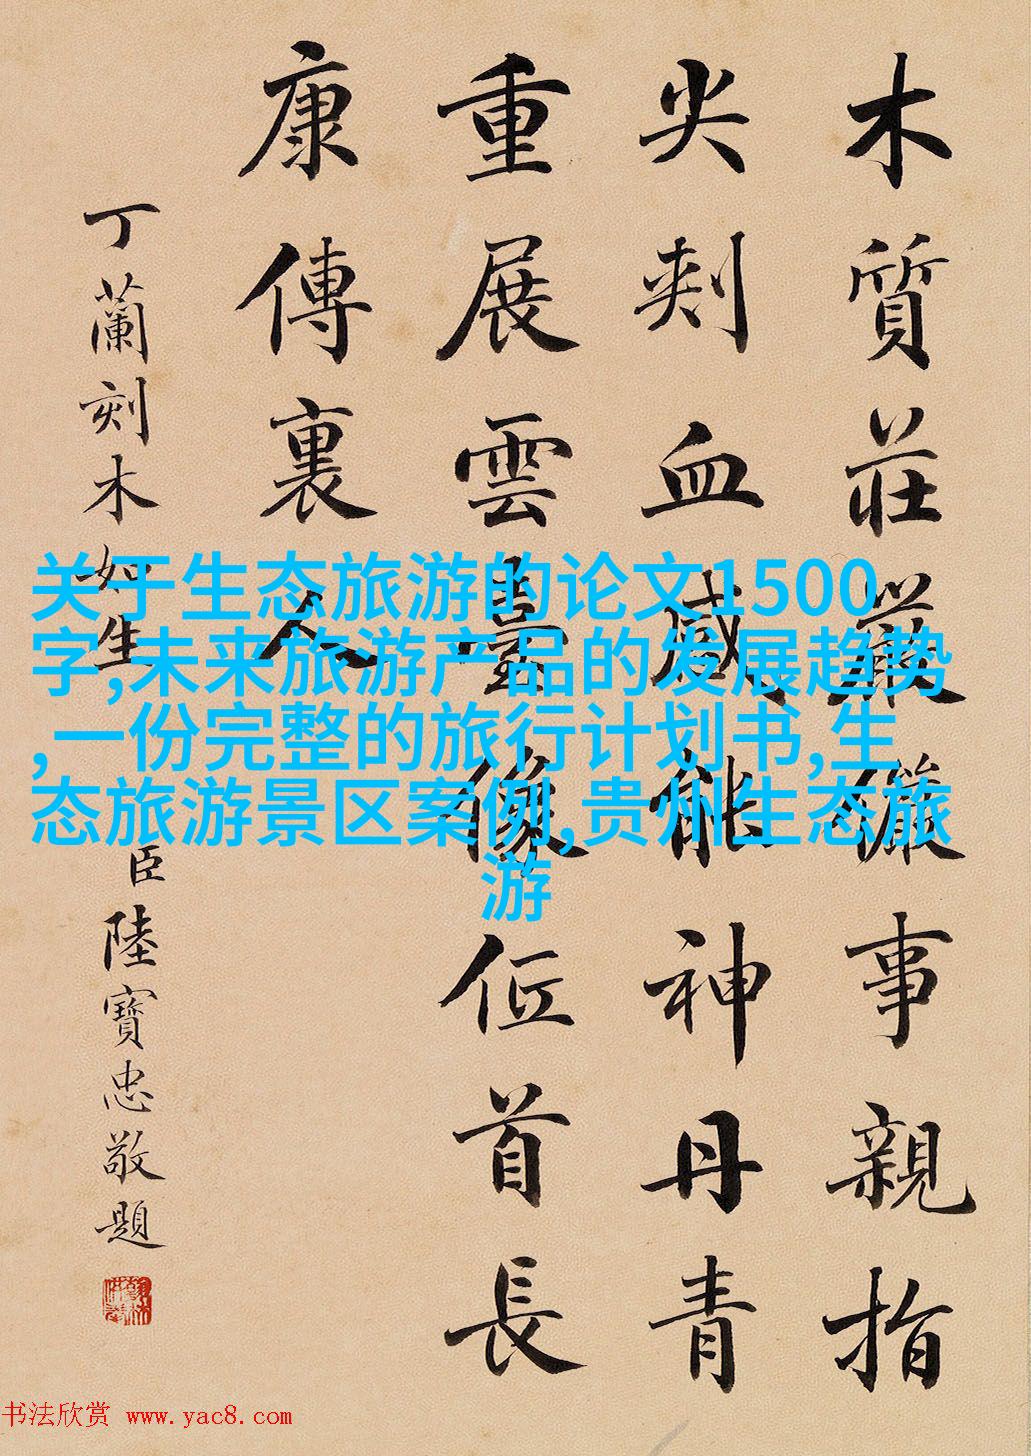 木質莊嚴儼事親指
尖刺血感能神丹青
重展雲臺像低首長
康傳裏人
丁蘭刻木如生
臣陸寶忠敬題
关于生态旅游的论文1500
字,未来旅游产品的发展趋势
,一份完整的旅行计划书,生
态旅游景区案例,贵州生态旅
游
书法欣赏 www.yac8.com